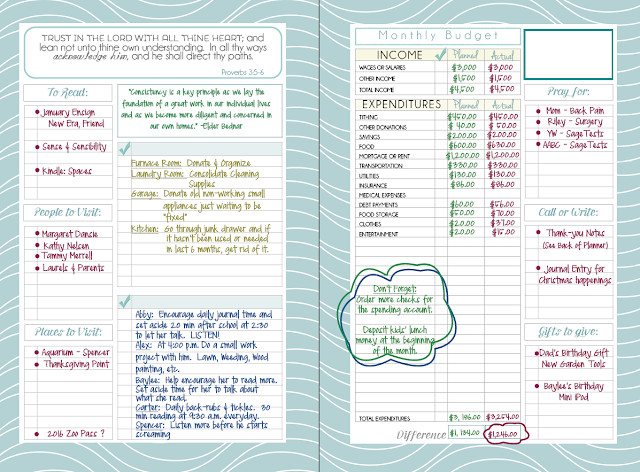 TRUST IN THE LORD WITH ALL THINE HEART; and
lean not unto thine own understanding. In all thy ways
acknowledge him, and he shall direct thy paths.
Proverbs 3:5-6
To Read:
January Ensign
New Era, Friend
Sense & Sensibility
Kindle: Spaces
People to Visit:
Margaret Dansie
Kathy Nelsen
Tammy Merrell
Laurels & Parents
Places to Visit:
Aquarium - Spencer
Thanksgiving Point
2016 Zoo Pass ?
"Consistency is a key principle as we lay the
foundation of a great work in our individual lives
and as we become more diligent and concerned in
our own homes." -Elder Bednar
Furnace Room: Donate & Organize
Laundry Room: Consolidate Cleaning
Supplies
Garage: Donate old non-working small
appliances just waiting to be
"fixed"
Kitchen: Go through junk drawer and if
it hasn't been used or needed
in last 6 months, get rid of it.
Abby: Encourage daily journal time and
set aside 20 min after school at 2:30
to let her talk. LISTEN!
Alex: At 4:00 p.m. Do a small work
project with him. Lawn, Weeding, Wood
painting, etc.
Baylee: Help encourage her to read more.
Set aside time for her to talk about
what she read.
Carter: Daily back-rubs & tickles. 30
min reading at 9:30 a.m. everyday.
Spencer: Listen more before he starts
screaming
Monthly Budget
INCOME Planned Actual
WAGES OR SALARIES $3,000 $3,000
OTHER INCOME $1,500 $1,500
TOTAL INCOME $4,500 $4,500
EXPENDITURES Planned Actual
TITHING $450.00 $450.00
OTHER DONATIONS $ 40.00 $ 50.00
SAVINGS $200.00 $200.00
FOOD $600.00 $630.00
MORTGAGE OR RENT $1,200.00 $1,200.00
TRANSPORTATION $330.00 $330.00
UTILITIES $130.00 $130.00
INSURANCE $86.00 $86.00
MEDICAL EXPENSES
DEBT PAYMENTS $60.00 $56.00
FOOD STORAGE $50.00 $70.00
CLOTHES $20.00 $37.00
ENTERTAINMENT $20.00 $15.00
Don't Forget:
Order more checks for
the spending account.
Deposit kids' lunch
money at the beginning
of the month.
TOTAL EXPENDITURES $3,186.00 $3,254.00
Difference $1,184.00 $1,246.00
Pray for:
Mom - Back Pain
Riley - Surgery
YW - Sage Tests
AABC - Sage Tests
Call or Write:
Thank-you Notes
(See Back of Planner)
Journal Entry for
Christmas happenings
Gifts to give:
Dad's Birthday Gift
New Garden Tools
Baylee's Birthday
Mini iPod